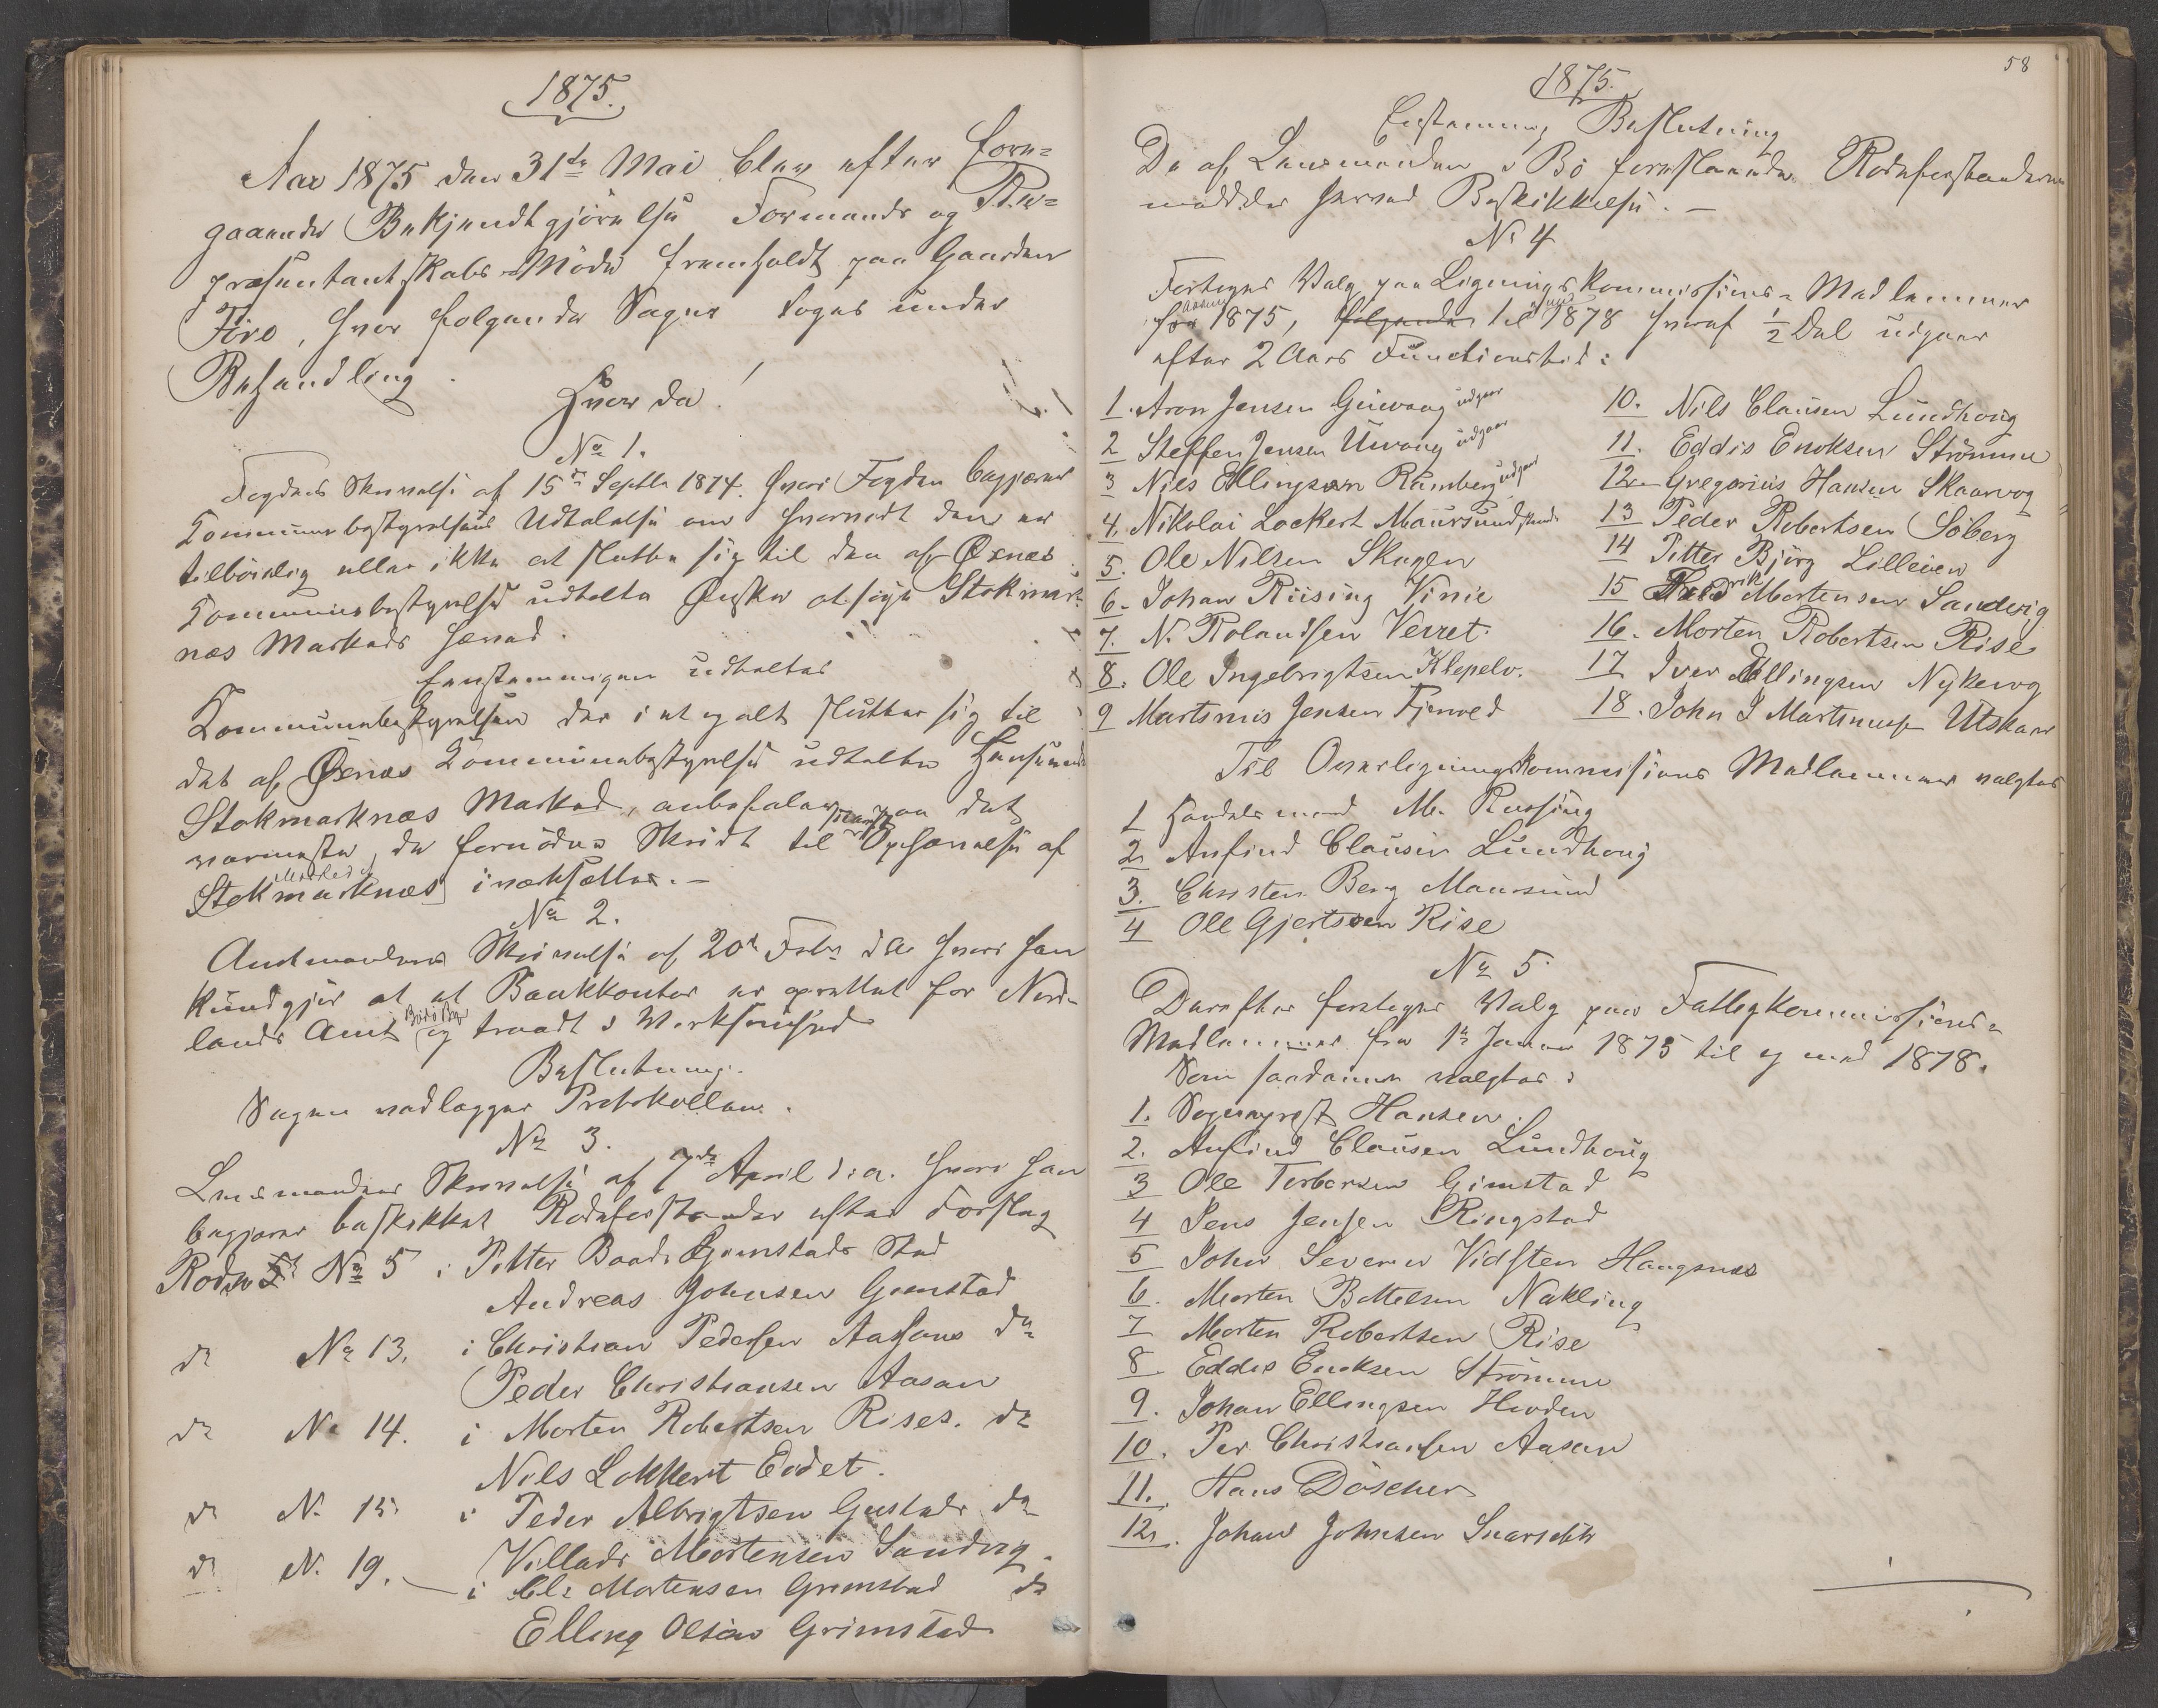 1875.
Aar 1875 den 31te Mai blev efter fore=
gaaende Bekjendtgjørelse Formands og Re=
præsentantskabs-Møde fremholdt paa Gaarden
Före, hvor følgende Sager toges under
Behandling.
Hvorda!
No 1.
Fogdens Skrivelse af 15de Septbr 1874. hvori Fogden begjærer
Kommunebestyrelsens Udtalelse om hvorvidt den er
tilböielig eller ikke at slutte sig til den af Øxnes
Kommunebestyrelse udtalte Ønske at søge Stokmark=
nes Markeds hævet.
Eenstemmigen udtaltes
Kommunebestyrelsen der i et og alt slutter sig til
det af Øxnes Kommunebestyrelse udtalte Hensende
Stokmarknæs Marked, anbefaler paa det
varmeste, de fornødne Skridt til Ophævelse af
Stokmarknæs Marked iværksættes.—
No 2.
Amtmandens Skrivelse af 20de Febr d.A. hvori han
kundgjör at et Bankkontor er oprettet for Nord=
lands Amt Bodø By og traadt i Virksomhed
Beslutning.
Sagen vedlægges Protokollen.
No 3.
Lensmandens Skrivelse af 7de April d.a. hvori han
begjærer beskikket Rodeforstander efter Forslag
Rode No 5 i Petter Baads Grimstads Sted
Andreas Johnsen Grimstad
do No 13. i Christian Pedersen Aasans do
Peder Christiansen Aasan
do No 14. i Morten Robertsen Rises. do
Nils Lokkert Eidet.
do N. 15 i Peder Albrigtsen Gustads do
Villads Mortensen Sandvig.
do N. 19. — i Ol: Mortensen Grimstad do
Elling Olsen Grimstad
58
1875.
Enstemmig Beslutning
De af Lensmanden i Bö foreslaaede Rodeforstandere
meddeles herved Beskikkelse.—
No 4
Foretoges Valg paa Ligningskommissions-Medlemmer
for Aarene 1875, følgende til 1878 hvoraf ½ Del udgaar
efter 2 Aars Functionstid:
1. Aron Jensen Guvaag udgaar
2 Steffen Jensen Uvaag udgaar
3 Nils Ellingsen Ramberg udgaar
4. Nikolai Lockert Maursund
5. Ole Nilsen Skagen
6. Johan Riising Vinie
7. N. Rolandsen Verret.
8. Ole Ingebrigtsen Klepelv.
9 Martinus Jensen Fjerved
10. Nils Clausen Lundhoug
11. Eddis Enoksen Strömme
12 Gregorius Hansen Skaarvog
13 Peder Robertsen Söberg
14 Petter Björg Lilleeien
15 Fredrik Mortensen Sandvig
16. Morten Robertsen Rise
17 Iver Ellingsen Nykevog
18. John J Martinusen Utskaar
Til Overligningskommissions Medlemmer valgtes
1 Handelsmand M. Riising
2 Anfind Clausen Lundhoug
3. Christen Berg Maursund
4 Ole Gjertsen Rise
No 5
Derefter foretoges Valg paa Fattigkommissions=
Medlemmer fra 1ste Januar 1875 til og med 1878.
Som saadanne valgtes:
1. Sogneprest Hansen.
2. Anfind Clausen Lundhoug
3 Ole Torbersen Gimstad
4 Jens Jensen Ringstad
5 John Severin Vidsten Haugsnæs
6. Morten Bottelsen Nakling
7 Morten Robertsen Rise
8 Eddis Enoksen Strömme
9. Johan Ellingsen Hovden
10. Per Christiansen Aasan
11. Hans Döscher
12. Johan Johnsen Snarseth